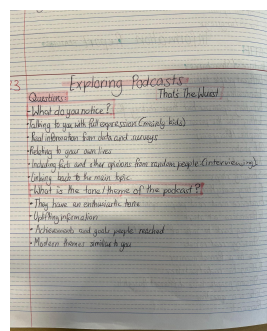 Exploring Podcasts
Questions: That's The Wurst
- What do you notice?
- Talking to you with full expression (mainly kids)
- Real information from data and surveys
- Relating to your own lives
- Including facts and other opinions from random people (interviewing)
- Linking back to the main topic
- What is the tone/theme of the podcast?
- They have an enthusiastic tone
- Uplifting information
- Achievements and goals people reached
- Modern themes similar to you